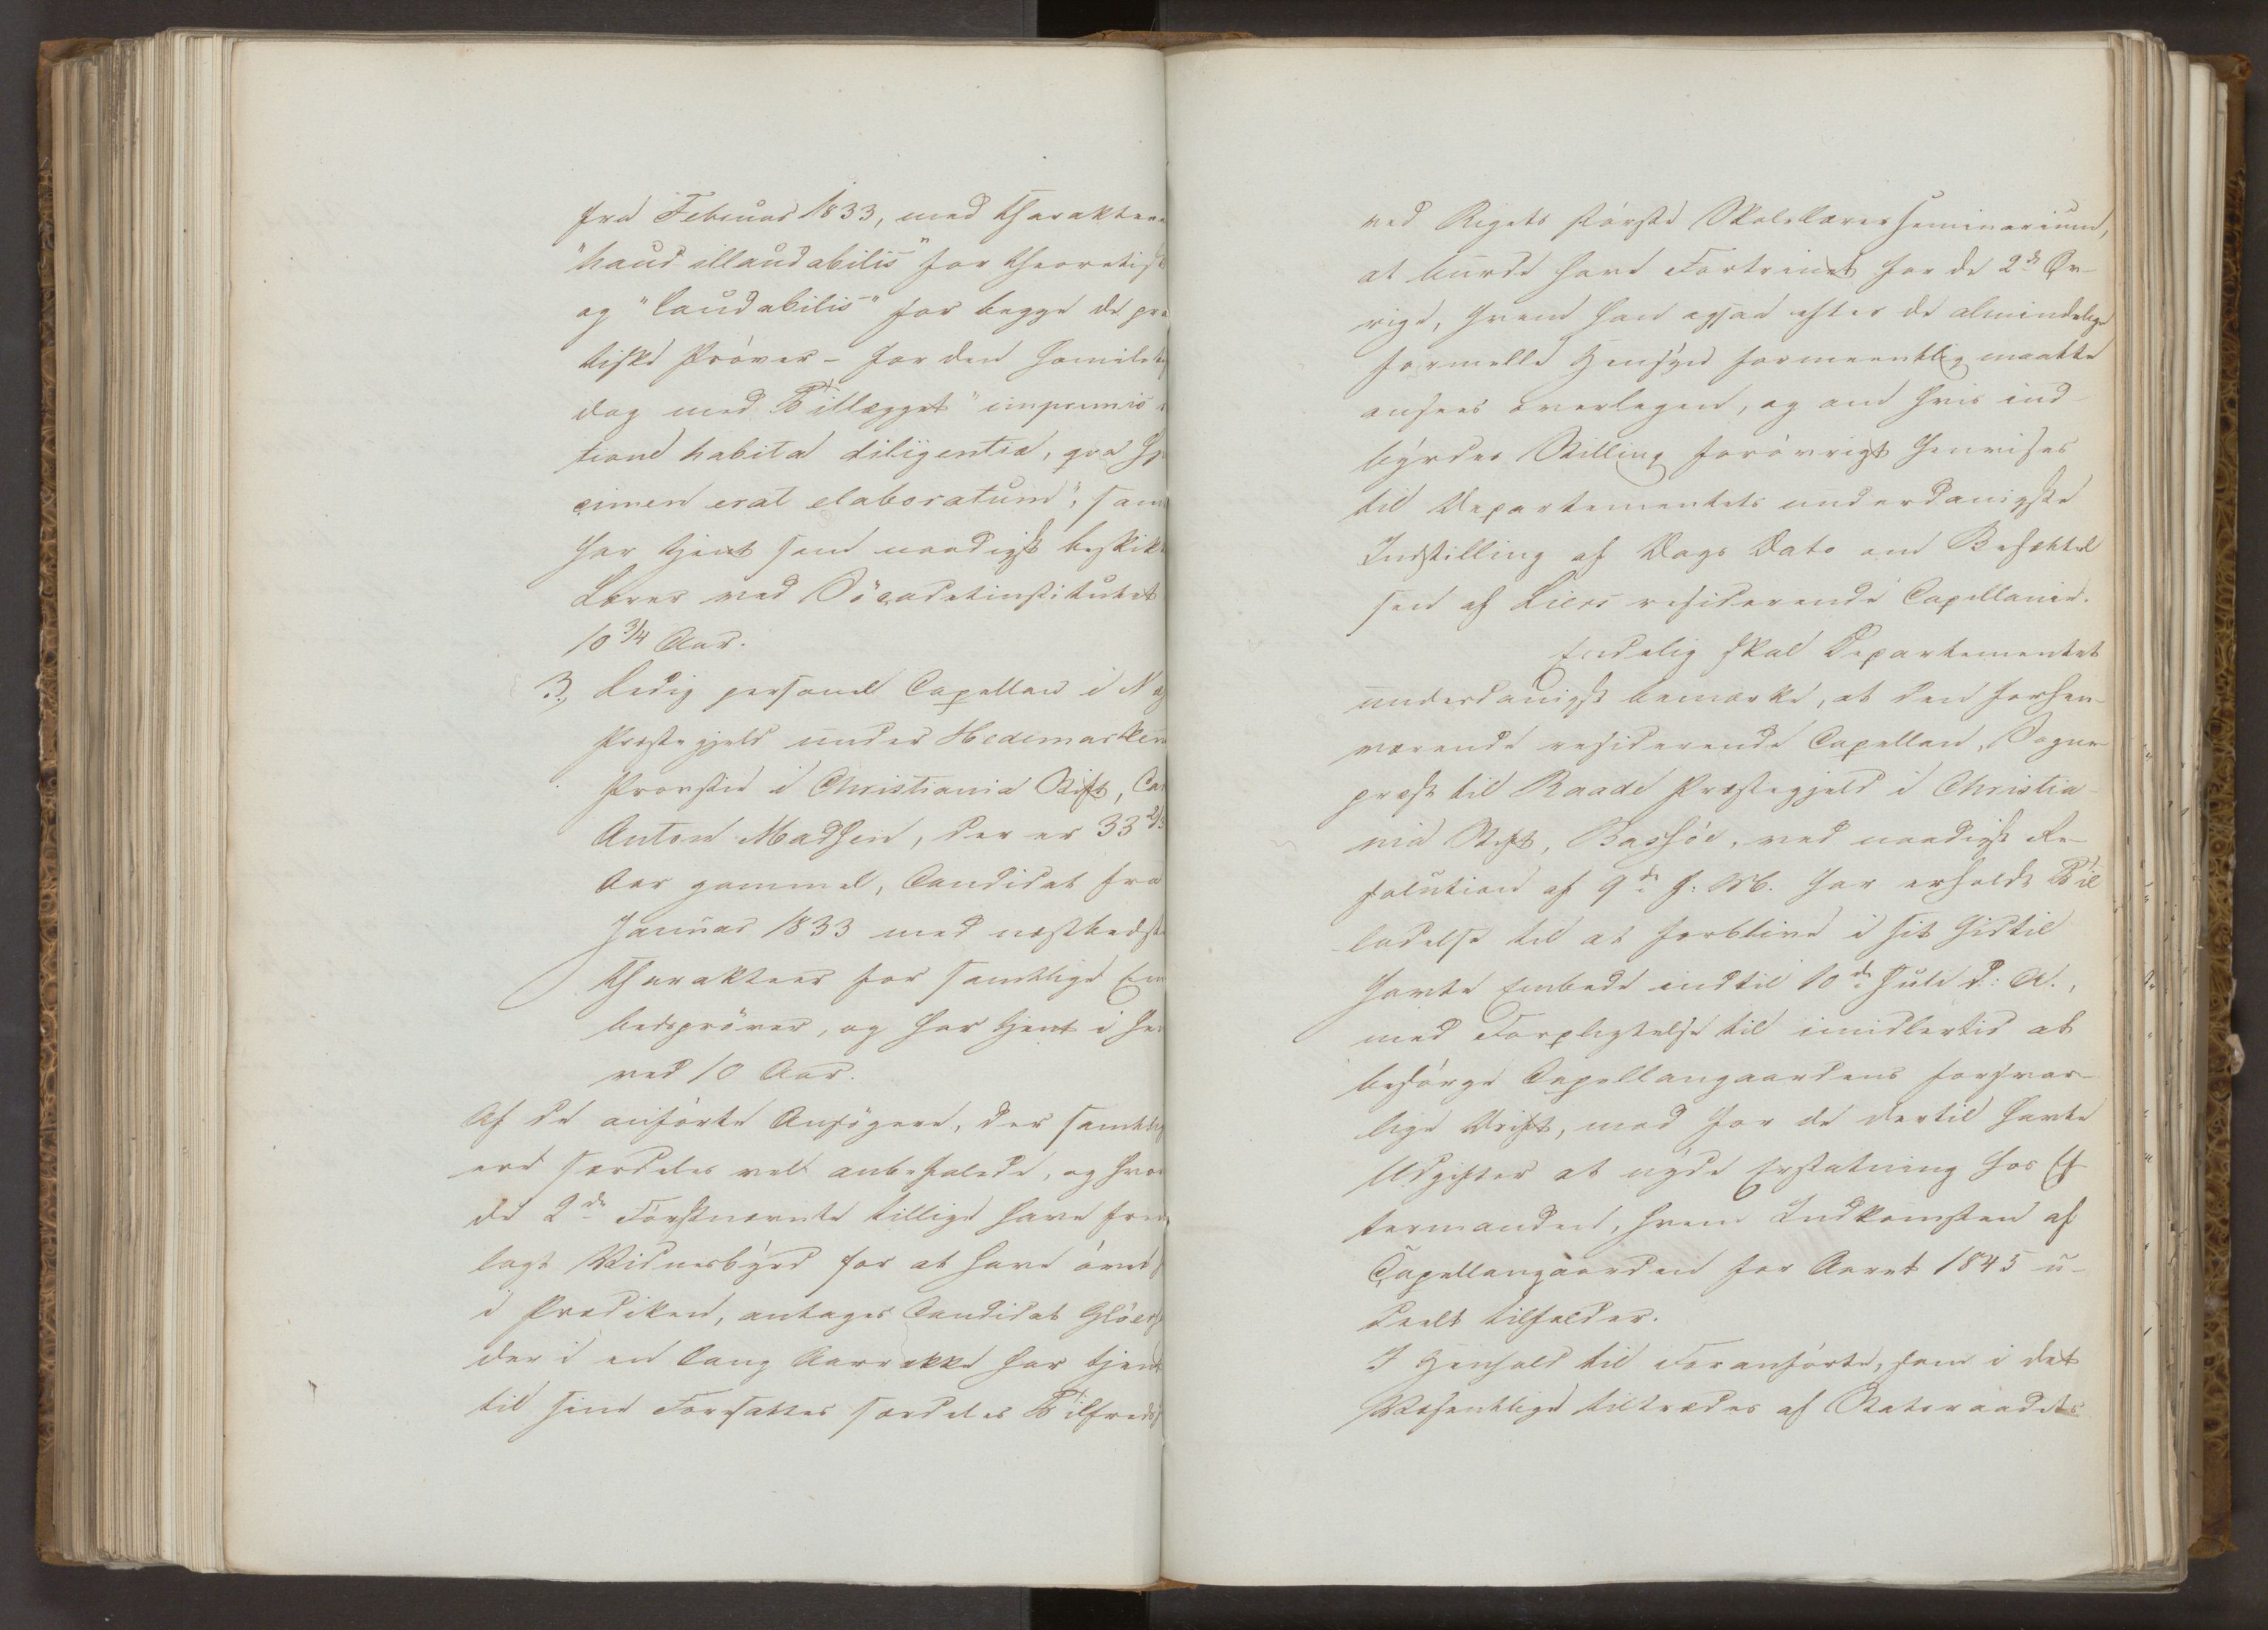 fra Februar 1833, med Charakteren
"haud illaudabilis" for theoretisk
og "laudabilis" for begge de prac
tiske Prøver - for den homiletiske
dog med Tillægget "imprimis
tione habita diligentiæ, qva Spe
cimen erat elaboratum", samt
har tjent som naadigst beskikket
Lærer ved Søcadetinstitutet
10 3/4 Aar.
3., Ledig personel Capellan i Næs
Præstegjeld under Hedemarkens
Provstie i Christiania Stift, Carl
Anton Madssen, der er 33 2/3
Aar gammel, Candidat fra
Januar 1833 med næstbedste
Charakteer for samtlige Em
bedsprøver, og har tjent i hen
ved 10 Aar.
Af de anførte Ansøgere, der samtlige
ere særdeles vel anbefalede, og hvoraf
de 2de Førstnævnte tillige have frem
lagt Vidnesbyrd for at have øvet sig
i Prædiken, antages Candidat Gløersen
der i en lang Aarrække har tjent
til sine Foresattes særdeles Tilfredshed
ved Rigets første Skolelærerseminarium,
at burde have Fortrinet for de 2de Øv-
rige, hvem han ogsaa efter de almindelige
formelle Hensyn formeentlig maatte
ansees overlegen, og om hvis ind-
byrdes Stilling forøvrigt henvises
til Departementets underdanigste
Indstilling af Dags Dato om Besættel
sen af Liers residerende Capellanie.
Endelig skal Departementet
underdanigst bemærke, at den forhen-
værende residerende Capellan, Sogne-
præst til Raade Præstegjeld i Christia-
nia Stift, Bassøe, ved naadigst Re-
solution af 9de f. M. har erholdt Til
ladelse til at forblive i sit hidtil
havte Embede indtil 10de Juli d: A.,
med Forpligtelse til imidlertid at
besørge Capellangaardens forsvar-
lige Drift, mod for de dertil havte
Udgifter at nyde Erstatning hos Ef
termanden, hvem Indkomsten af
Capellangaarden for Aaret 1845 u-
deelt tilfalder.
I Henhold til Foranførte, som i det
Væsentlige tiltrædes af Statsraadets